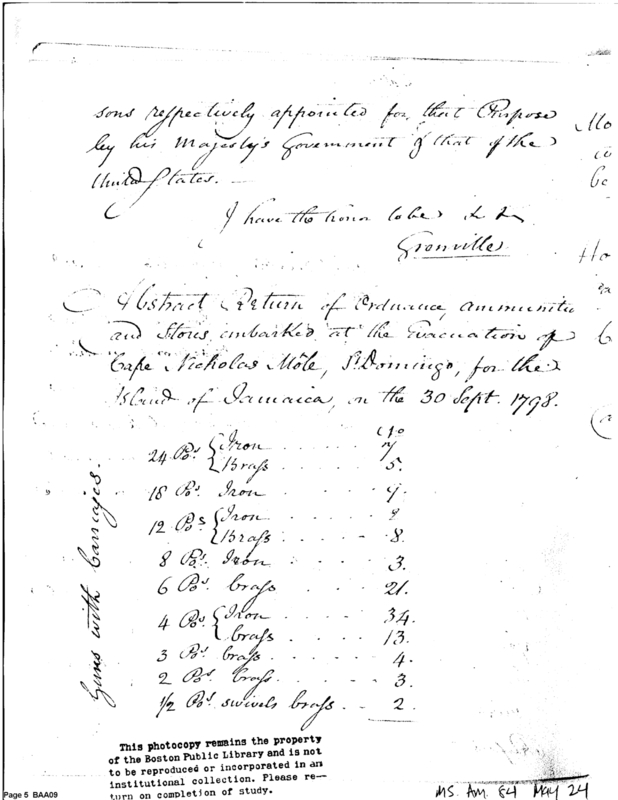 sons respectively appointed for that Purpose
by his Majesty's Government & that of the
United States. —
I have the honor to be & &
Grenville
Abstract Return of Ordnance, ammunitio
and Stores embarked at the Evacuation of
Cape Nicholas Môle, St. Domingo, for the
Island of Jamaica, on the 30 Sept. 1798.
Guns with Carriages.
No
24 Pos. { Iron . . . . . 7
{ Brass . . . . 5.
18 Pos. Iron . . . .
12 Pos { Iron . . . . .
{ Brass . . . . . 8.
8 Pos. Iron . . . . 3.
6 Pos. brass . . . . 21.
4 Pos. { Iron . . . . 34.
{ brass . . . . 13.
3 Pos. brass . . . . . 4.
2 Pos. brass . . . . 3.
1/2 Pos. swivels brass . . 2.
Mo
be
Ho
This photocopy remains the property
of the Boston Public Library and is not
to be reproduced or incorporated in an
institutional collection. Please re-
turn on completion of study.
Page 5 BAA09
MS. Am. 84 May 24